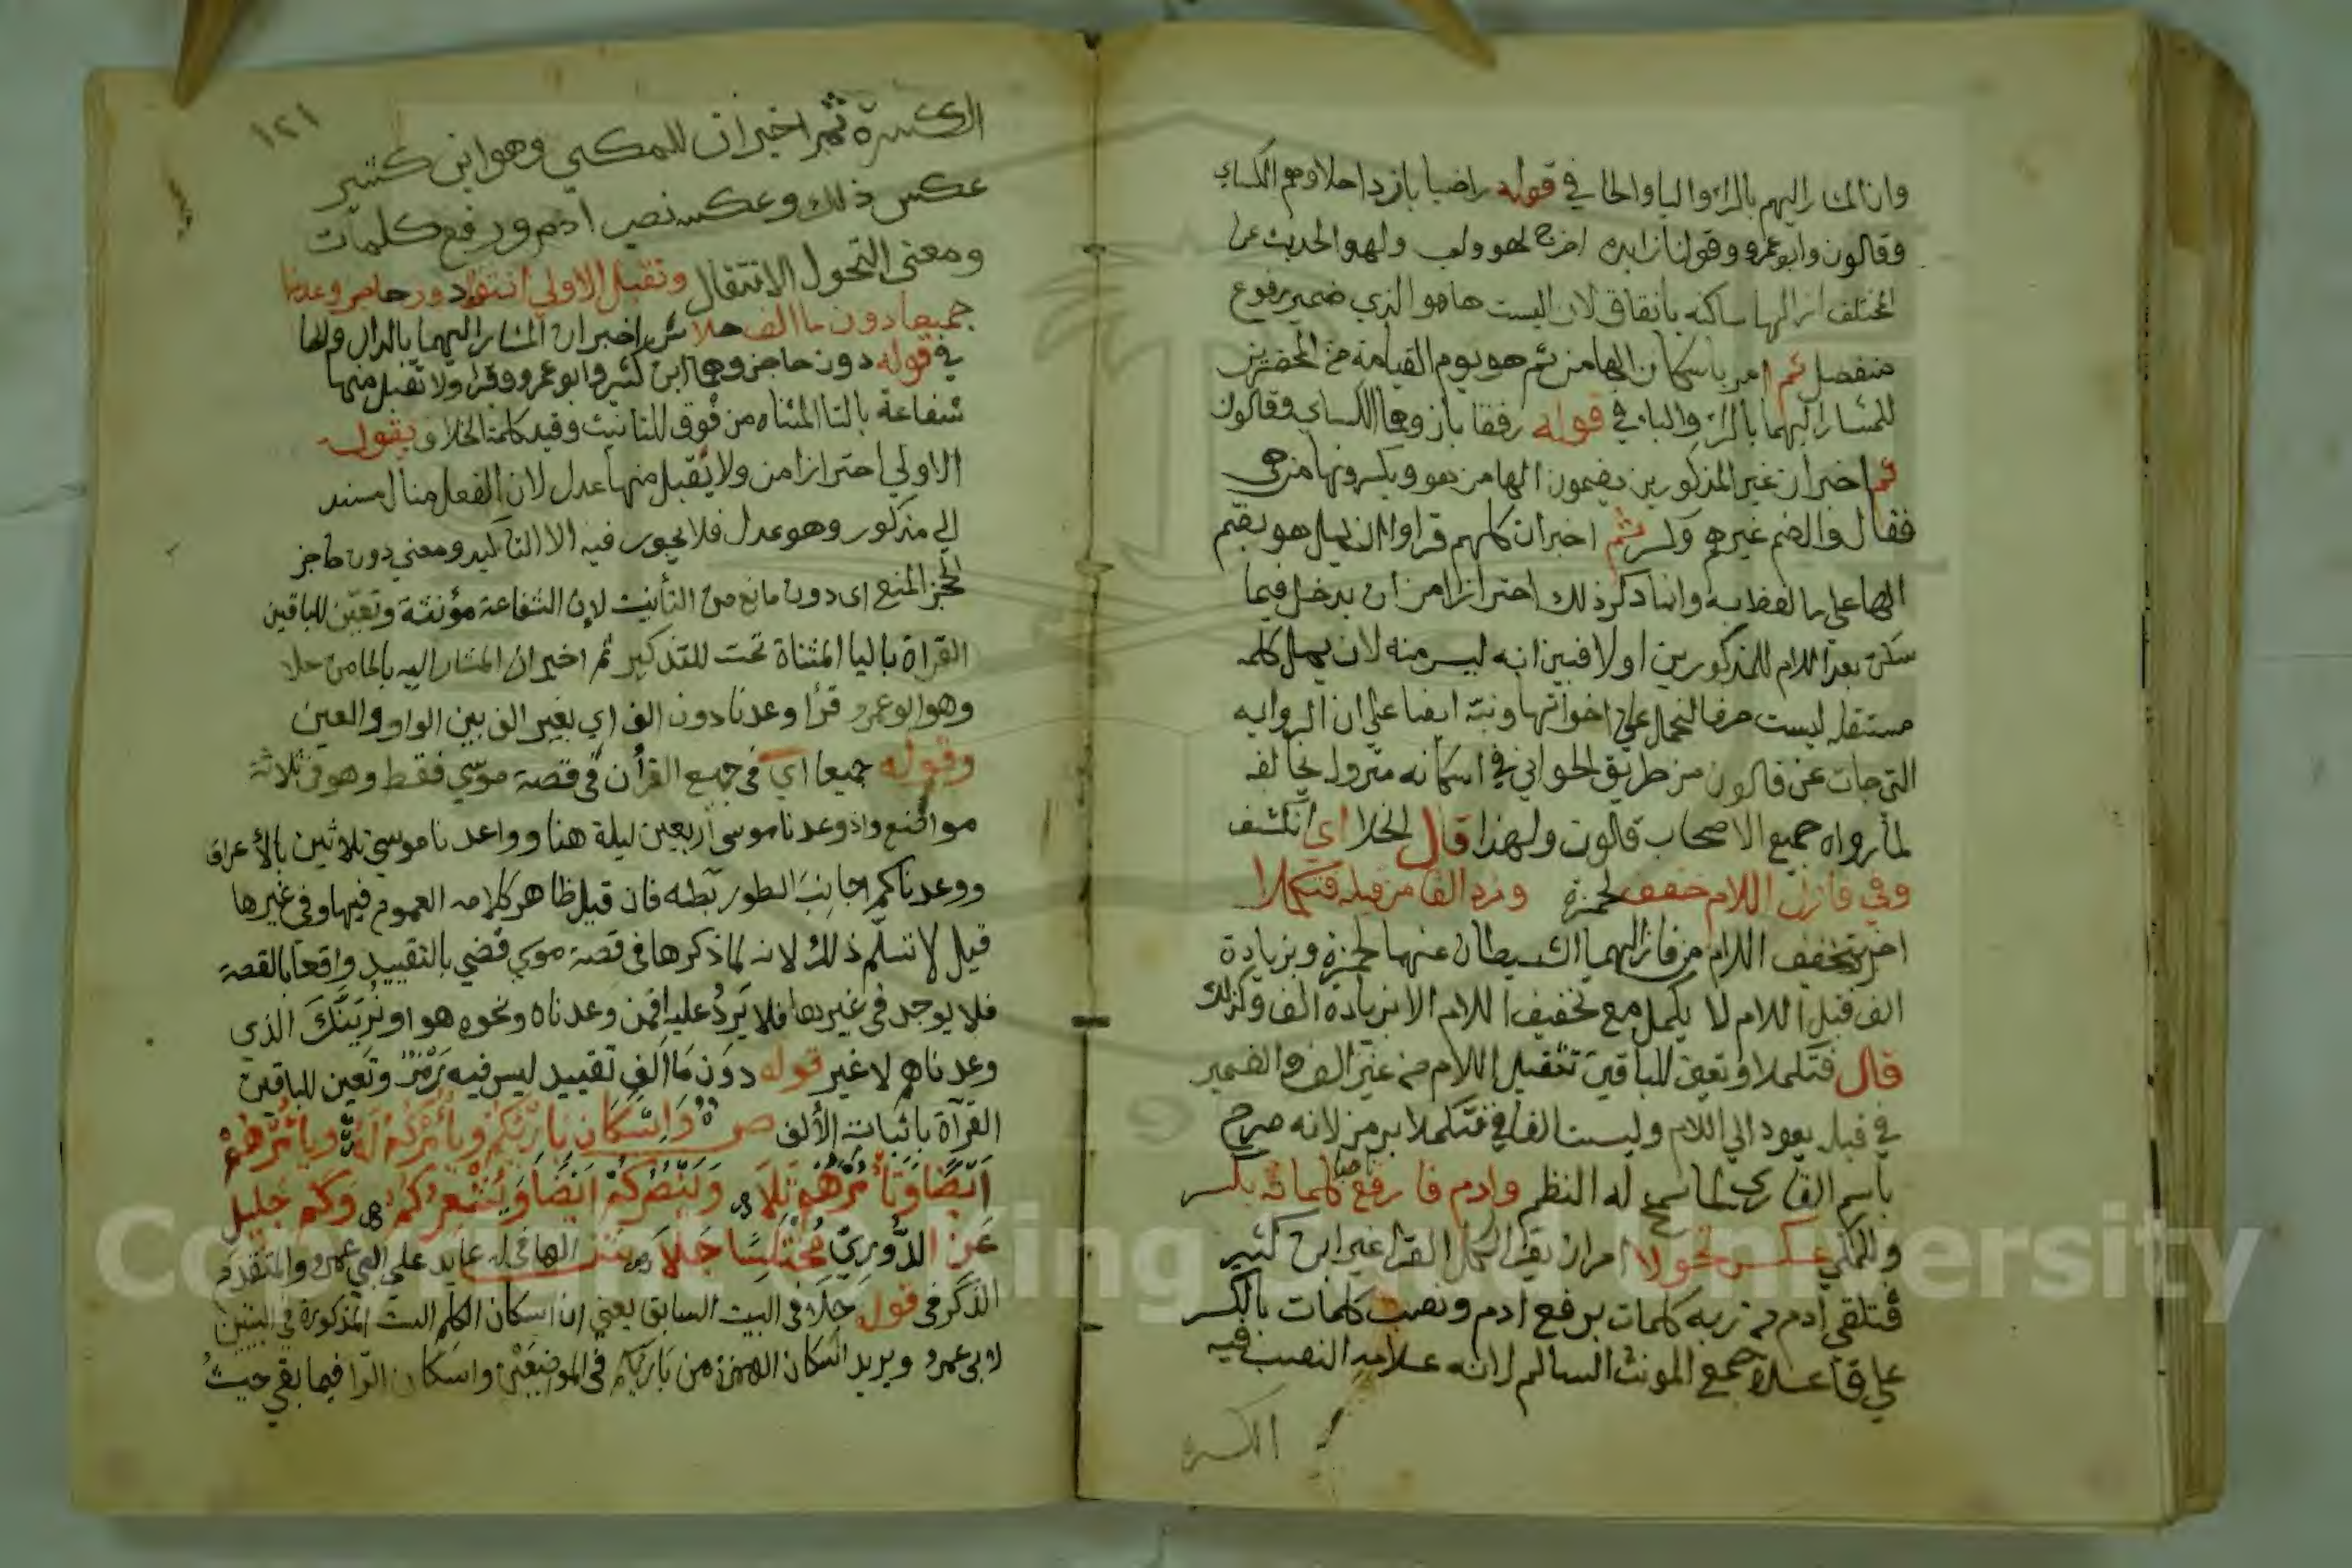 وان المشار اليهم بالراء والبا والحا في قوله راضيا باردا حلا وهم الكساي
وقالون وابو عمرو وقولنا زايده اخرج لهو ولعب ولهو الحديث عن
المختلف اذ الها ساكنه باتفاق لان ليست ها هو الذي ضمير مرفوع
منفصل ثم امر باسكان الها من ثم هو يوم القيامة من المحضرين
للمشار اليهما بالراء والباء في قوله رفقا بان وهما الكساي وقالون
ثم اخبر ان غير المذكورين يضمون الها من هو ويكسرونها من هي
فقال والضم غيرهم وكسر ثم اخبر ان كلهم قراوا ان يمل هو بضم
الها على ما لفظ به وانما ذكر ذلك احترازا من ان يدخل فيما
سكن بعد اللام للمذكورين اولا فبين انه ليس منه لان يمل كلمه
مستقله ليست حرفا لتحمل على اخواتها ونبه ايضا على ان الروايه
التي جات عن قالون من طريق الحلواني في اسكانه متروله لمخالفه
لما رواه جميع الاصحاب قالون ولهذا قال انجلا اي انكشف
وفي فازل اللام خفف لحمزة وزد الفا من قبله فتكملا
اخبر بتخفيف اللام من فازالهما الشيطان عنها لحمزة وبزيادة
الف قبل اللام لا يكمل مع تخفيف اللام الا بزيادة الف وكذلك
قال فتكملا وتعين للباقين تثقيل اللام من غير الف والضمير
في قبله يعود الى اللام وليست الفا في فتكملا برمز لانه صرح
باسم القاري لما سمح له النظم وادم فارفع ناصبا كلماته بكسر
وللمكي عكس تحولا امر ان يقرا لكل القرا غير ابن كثير
فتلقى ادم من ربه كلمات برفع ادم ونصب كلمات بالكسر
على قاعدة جمع المونث السالم لانه علامة النصب فيه
الكسرة
١٢١
الكسرة ثم اخبر ان للمكي وهو ابن كثير
عكس ذلك وعكسه نصب ادم ورفع كلمات
ومعنى التحول الانتقال وتقبل الاولى انثوا دون حاجز وعدنا
جميعا دون ما الف حلا ثم اخبر ان المشار اليهما بالدال والحا
في قوله دون حاجز وهما ابن كثير وابو عمرو وقرا ولا تقبل منها
شفاعة بالتا المثناه من فوق للتانيث وقيد كلمة الخلاف بقوله
الاولى احترازا من ولا يقبل منها عدل لان الفعل هنا لمسند
الى مذكور وهو عدل فلا يجوز فيه الا التذكير ومعنى دون حاجز
الحجز المنع اى دون مانع من التأنيث لان الشفاعة مؤنثة وتعين للباقين
القراة باليا المثناة تحت للتذكير ثم اخبر ان المشار اليه بالحا من حلا
وهو ابو عمرو قرأ وعدنا دون الف اي بغير الف بين الواو والعين
وقوله جميعا اي فى جميع القرأن فى قصة موسى فقط وهو فى ثلاثة
مواضع واذ وعدنا موسى أربعين ليلة هنا وواعدنا موسى ثلاثين بالأعراف
ووعدناكم جانب الطور بطه فان قيل ظاهر كلامه العموم فيها وفى غيرها
قيل لا نسلم ذلك لانه لما ذكرها فى قصة موسى قضي بالتقييد واقعا بالقصة
فلا يوجد فى غيرها فلا يرد عليه افمن وعدناه ونحوه هو او نرينك الذي
وعدناهم لا غير قوله دون ما الف تقييد ليس فيه رمز وتعين للباقين
القرأة باثبات الألف ص واسكان بارئكم ويأمركم له ويأمرهم
أيضا وتأمرهم تلا وينصركم ايضا ويشعركم وكم جليل
عن الدوري مختلسا جلا ش الها فى له عايد على ابي عمرو المتقدم
الذكر فى قوله حلا فى البيت السابق يعنى ان اسكان الكلم الست المذكورة في البيتين
لابي عمرو ويريد اسكان الهمزة من بارئكم فى الموضعين واسكان الرا فيما بقى حيث
Copyright © King Saud University